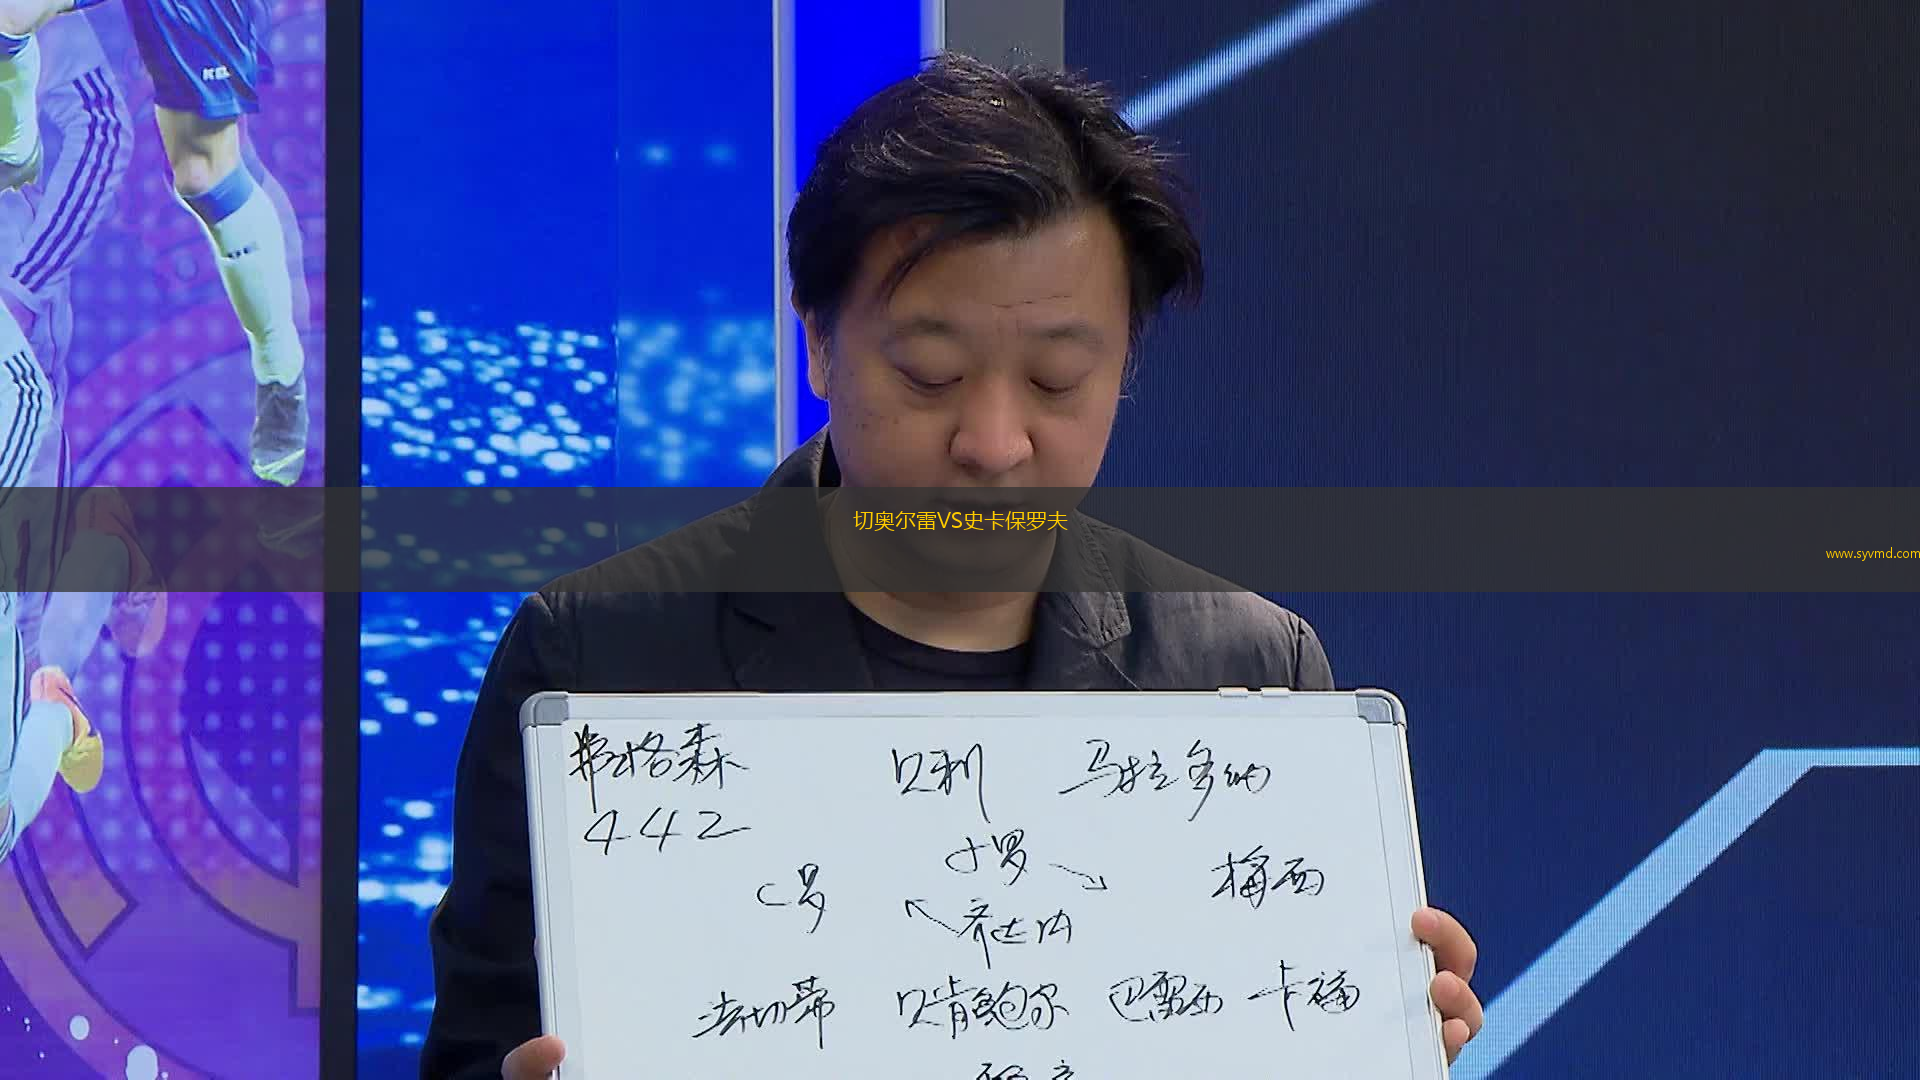 KEL
切奥尔雷VS史卡保罗夫
www.syvmd.com
弗格森 贝利 马拉多纳
442
小罗
C罗 梅西
齐达内
法切蒂 贝肯鲍尔 巴雷西 卡福